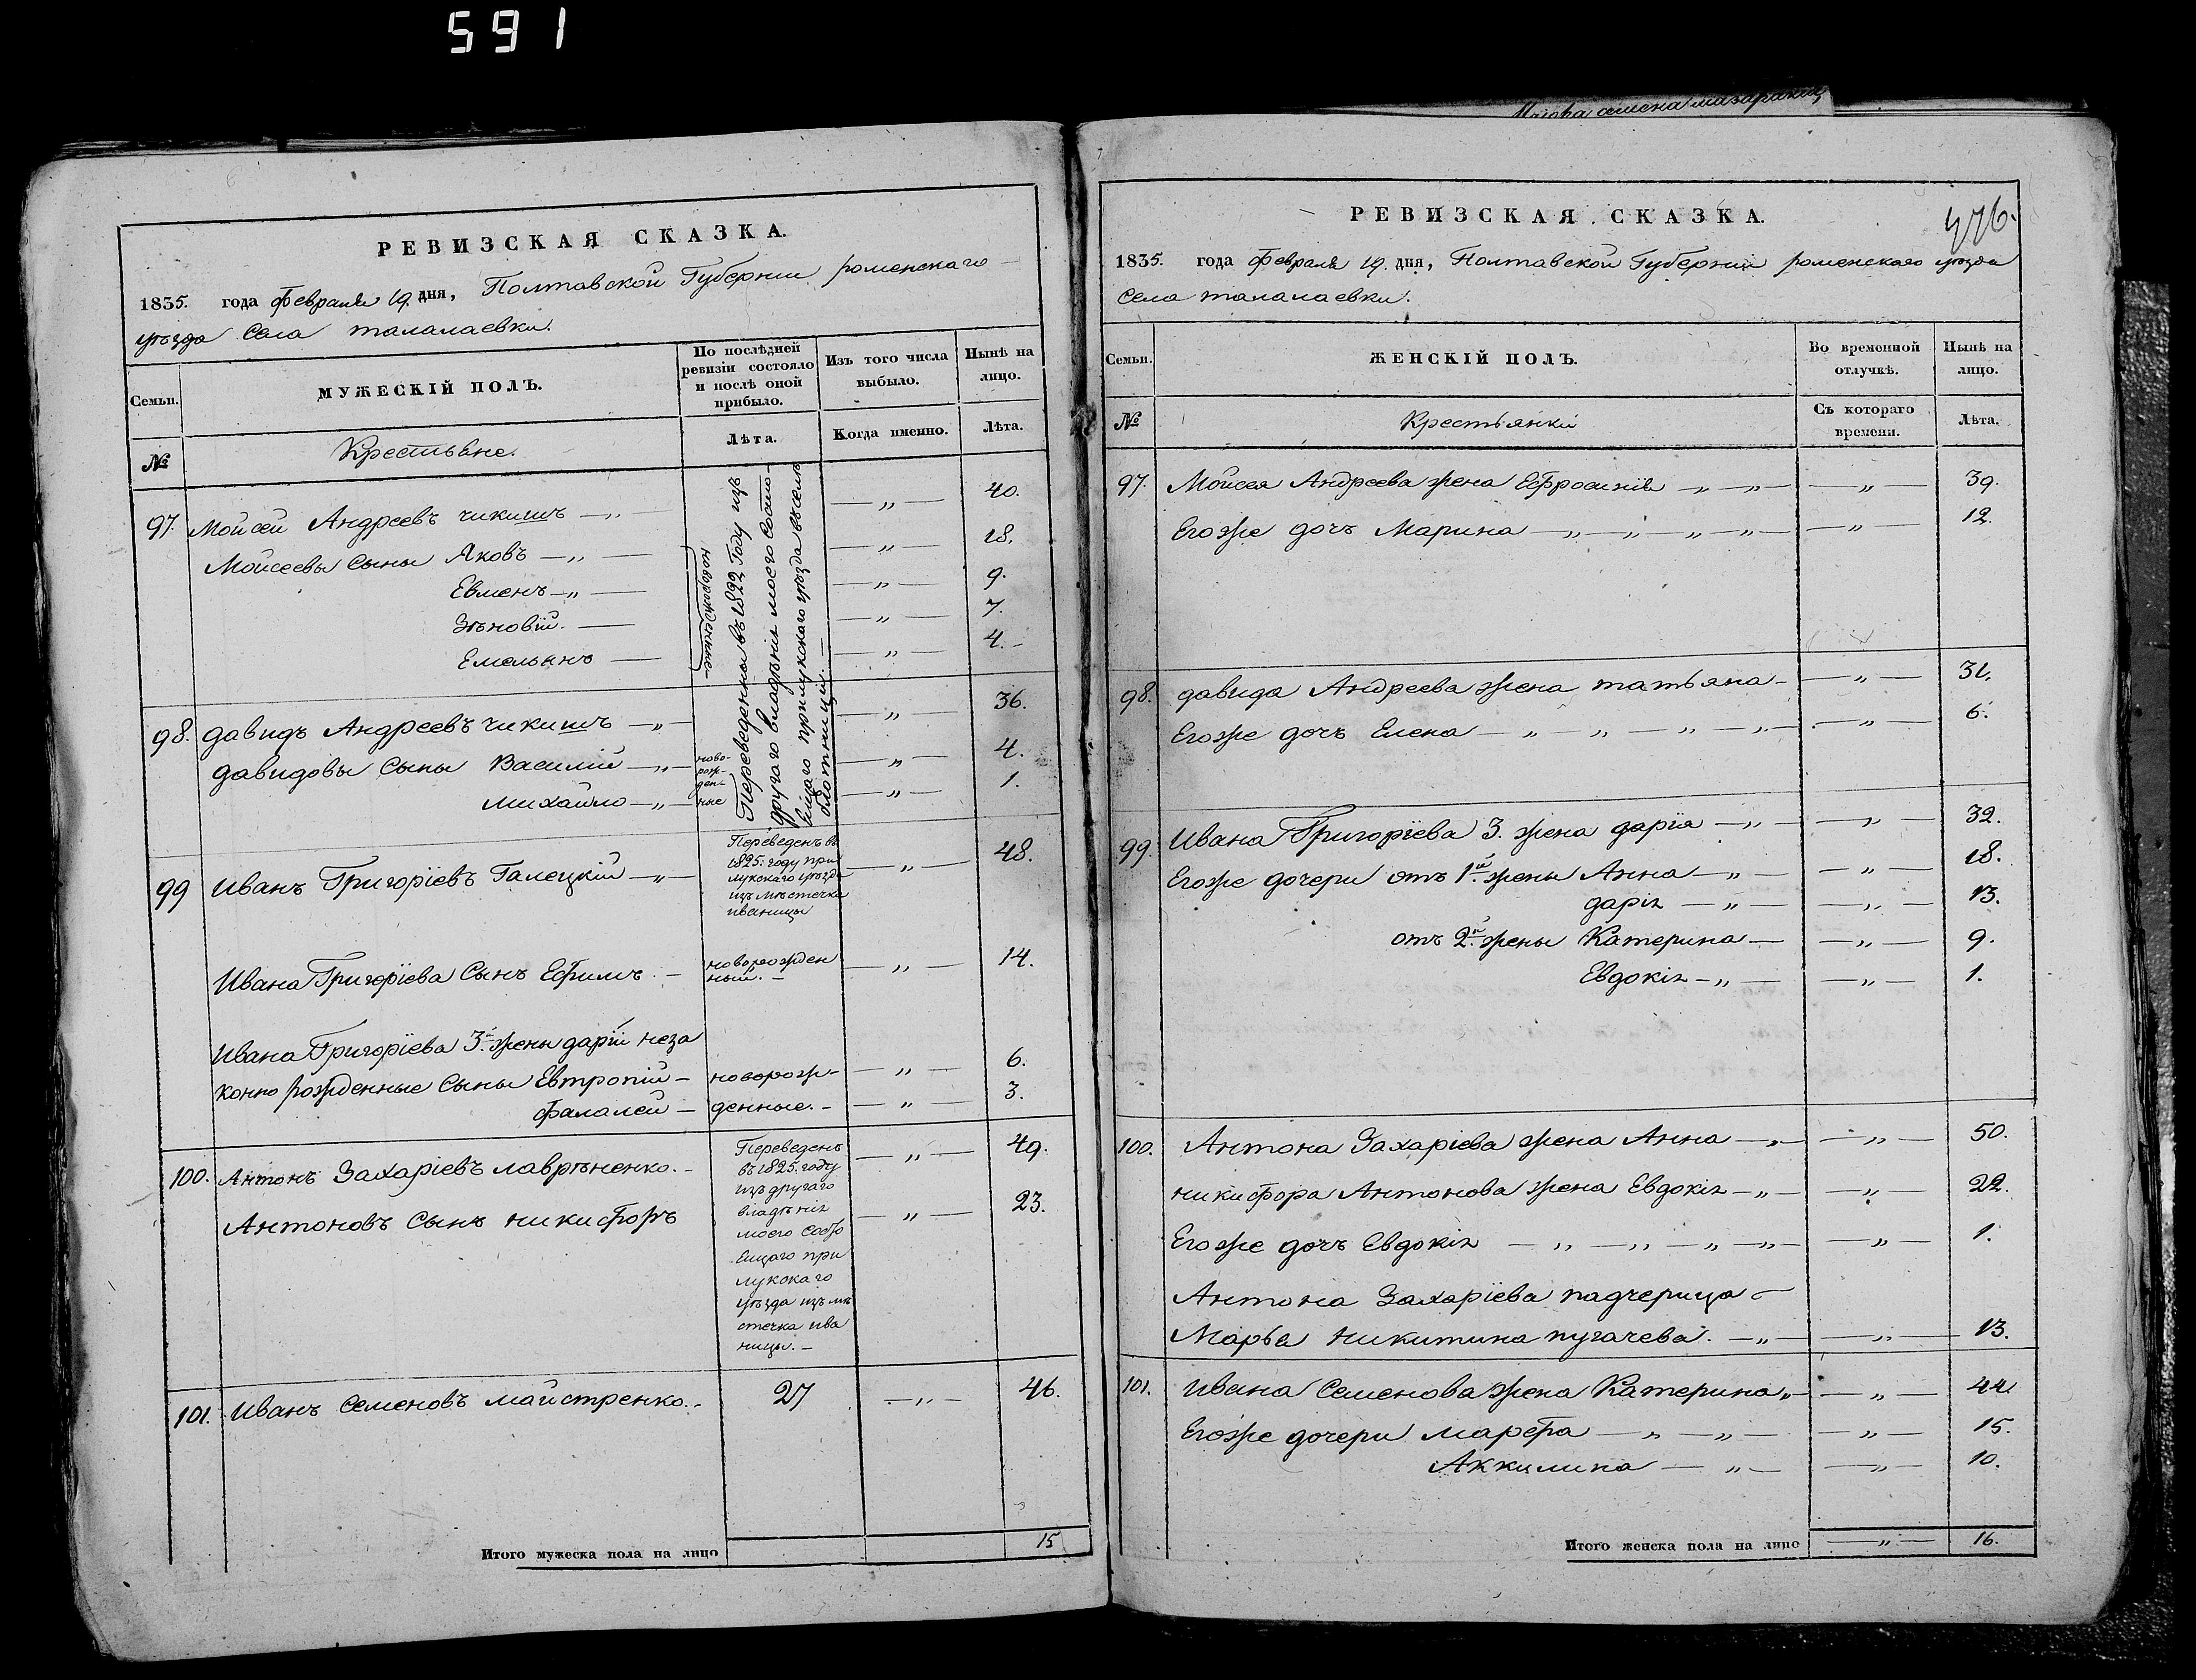 591
РЕВИЗСКАЯ СКАЗКА.
1835. года Февраля 19 дня, Полтавской Губернии роменскаго
уѣзда Села талалаевки.
Семьи.
МУЖЕСКІЙ ПОЛЪ.
По послѣдней
ревизіи состояло
и послѣ оной
прибыло.
Изъ того числа
выбыло.
Нынѣ на
лицо.
№
Крестьяне.
Лѣта.
Когда именно.
Лѣта.
97. Моисей Андреевъ чикишъ — „ — — „ — 40.
Моисеевы Сыны Яковъ — „ — — „ — 18.
Евменъ — „ — — „ — 9.
Зѣновій. — — „ — 7.
Емельянъ — — „ — 4. -
новорожденные
Переведенны въ 1822 Году изъ
другаго владѣнія моего состо-
ящаго прилукскаго уѣзда
98. давидъ Андреевъ чикишъ — „ — — „ — 36.
давидовы Сыны Василій — „ — ново- — „ — 4.
рож-
ден-
михайло — „ — ные — „ — 1.
99 Иванъ Григоріевъ Галецкій — „ — — „ — 48.
Переведенъ въ
1825. году при
лукскаго уѣзда
изъ мѣстечка
иваницы
Ивана Григоріева Сынъ Ефимъ. — новорожден — „ — 14.
ный. —
Ивана Григоріева 3.й жены даріи неза
конно рожденные Сыны Евтропій — новорож- — „ — 6.
фалалей — денные. — — „ — 3.
100. Антонъ Захаріевъ лаврѣненко. — — „ — 49.
Антоновъ Сынъ никифоръ — „ — 23.
Переведенъ
въ 1825. году
изъ другаго
владѣнія
моего состо
ящаго при
лукскаго
уѣзда изъ мѣ
стечка ива
ницы. —
101. Иванъ Семеновъ майстренко. - 27 — „ — 46.
Итого мужеска пола на лицо 15
РЕВИЗСКАЯ СКАЗКА.
476.
1835. года Февраля 19. дня, Полтавской Губерніи роменскаго уѣзда
Села талалаевки.
Семьи.
ЖЕНСКІЙ ПОЛЪ.
Во временной
отлучкѣ.
Нынѣ на
лицо.
№
Крестьянки
Съ котораго
времени.
Лѣта.
97. Моисея Андреева жена Ефросинія — „ — „ — — „ — 39.
Егоже дочъ Марина — „ — „ — „ — „ — — „ — 12.
98. давида Андреева жена татьяна — — „ — 31.
Егоже дочъ Елена — „ — „ — „ — „ — — „ — 6.
99. Ивана Григоріева 3. жена дарія — „ — — „ — 32.
Егоже дочери отъ 1.й жены Анна — „ — — „ — 18.
дарія — „ — — „ — 13.
отъ 2.й жены Катерина — — „ — 9.
Евдокія — „ — — „ — 1.
100. Антона Захаріева жена Анна — „ — — „ — 50.
никифора Антонова жена Евдокія — „ — — „ — 22.
Егоже дочъ Евдокія — „ — „ — „ — „ — — „ — 1.
Антона Захаріева падчерица —
Марья никитина пугачева. — „ — — „ — 13.
101. Ивана Семенова жена Катерина „ — — „ — 44
Егоже дочери марфа — „ — „ — — „ — 15.
Аккилина — „ — — „ — 10.
Итого женска пола на лицо — „ — 16.